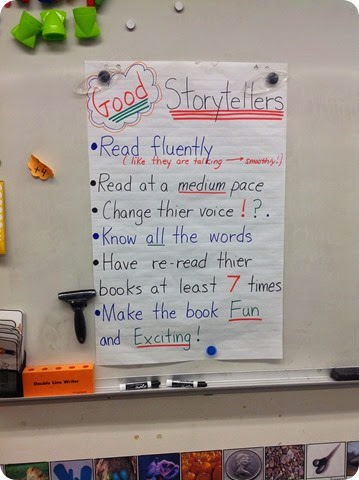 Good Storytellers
• Read fluently
(like they are talking → smoothly!)
• Read at a medium pace
• Change thier voice !?.
• Know all the words
• Have re-read thier
books at least 7 times
• Make the book Fun
and Exciting!
+4
Double Line Writer